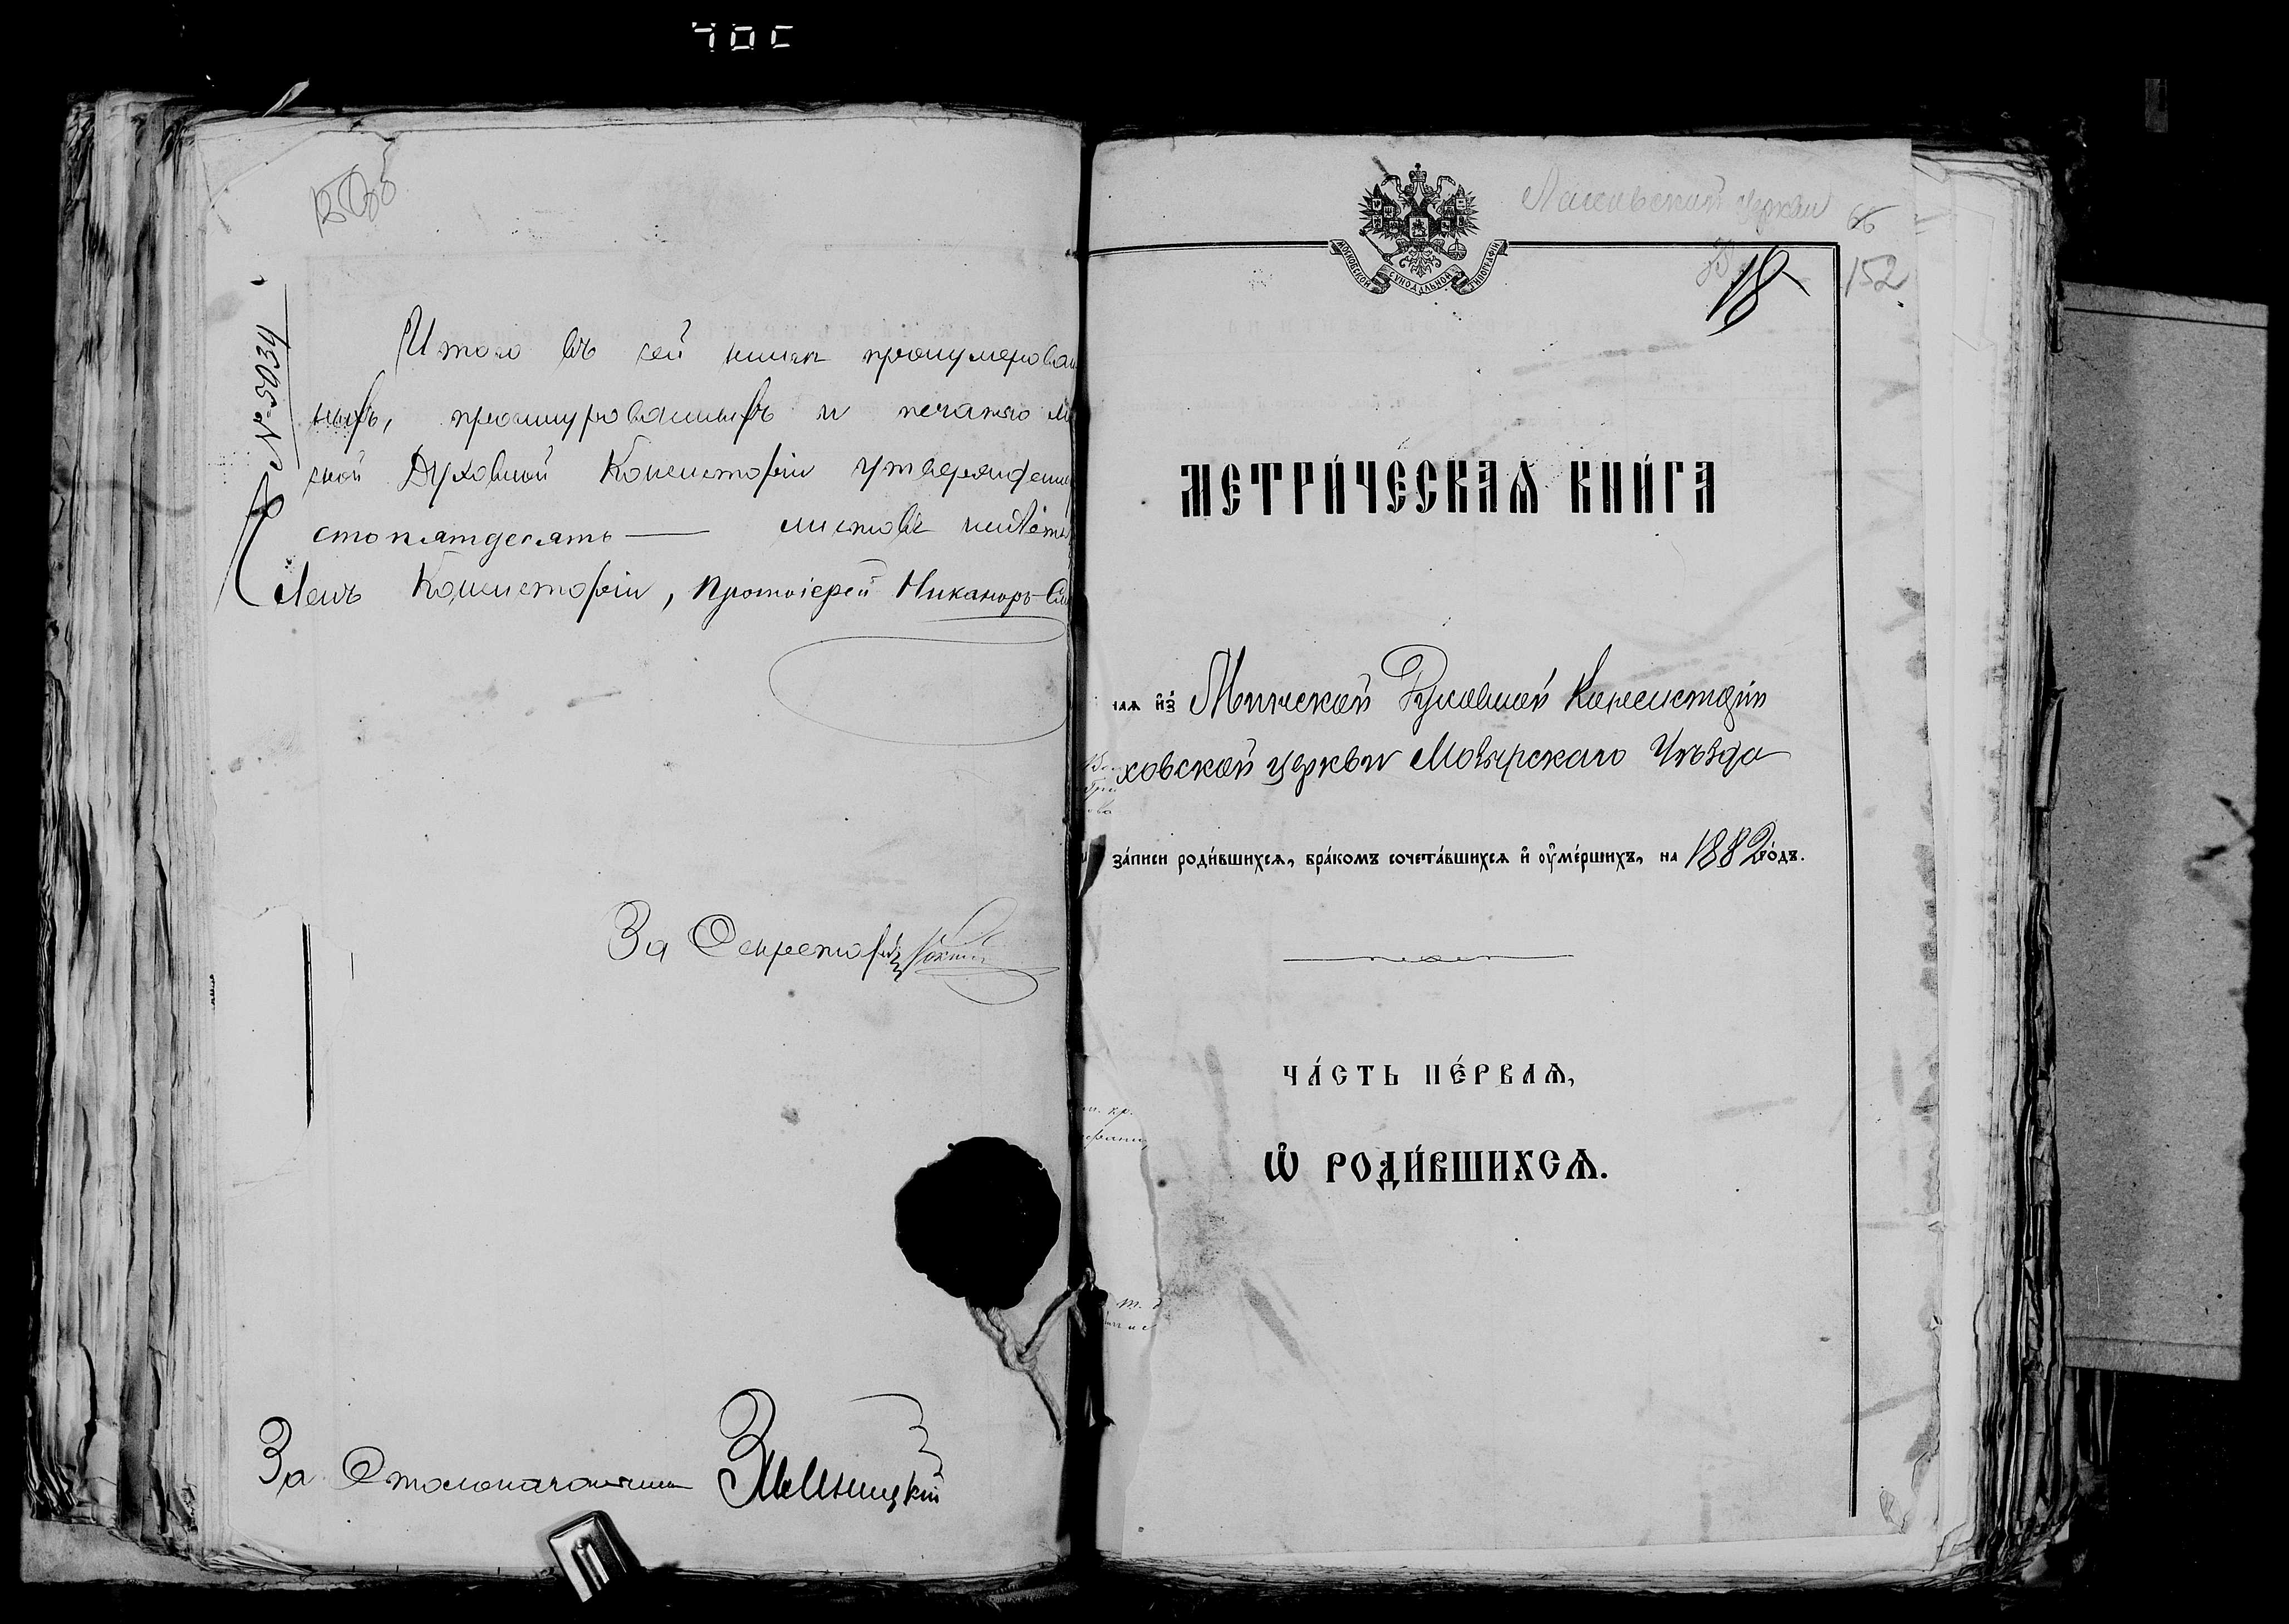 № 5034
Итого въ сей книгѣ пронумерован
ныхъ, прошнурованныхъ и печатью Ми
ской Духовной Консисторіи утвержденн
стопятдесятъ — листовъ
Членъ Консисторіи, Протоіерей Никаноръ
За Секретаря
За Столоначальника
церкви
66
152
18
МОСКОВСКОЙ СУНОДАЛЬНОЙ ТИПОГРАФІИ
МЕТРИ́ЧЕСКАѦ КНИ́ГА
наѧ и҆з̾ Минской Духовной Консисторіи
ховской церкви Мозырскаго Уѣзда
за́писи роди́вшихсѧ, бра́комъ сочета́вшихсѧ и҆ ᲂу҆ме́ршихъ, на 1882 го́дъ.
ЧА́СТЬ ПЕ́РВАѦ,
Ѽ РОДИ́ВШИХСѦ.